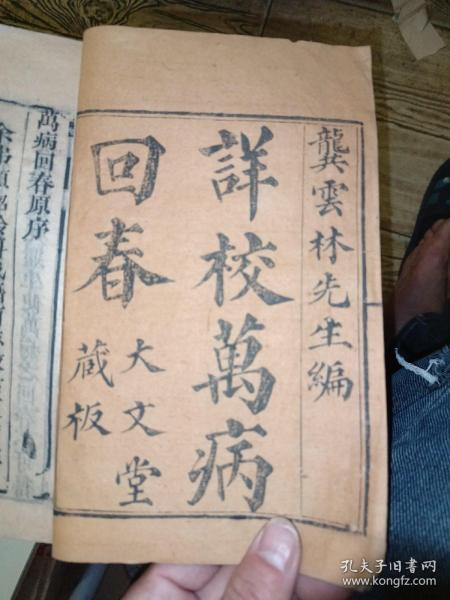 龔雲林先生編
詳校萬病
回春
大文堂
藏板
萬病回春原序
孔夫子旧书网
www.kongfz.com